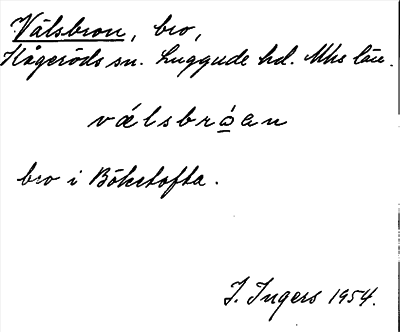 Välsbron, bro,
Kågeröds sn. Luggude hd. Mhs län.
vælsbroan
bro i Böketofta.
I. Ingers 1954.